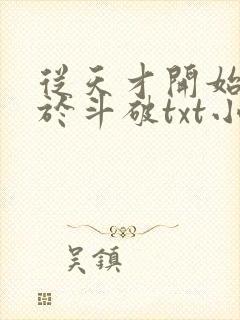 從天才開始
於斗破txt小
吳鎮